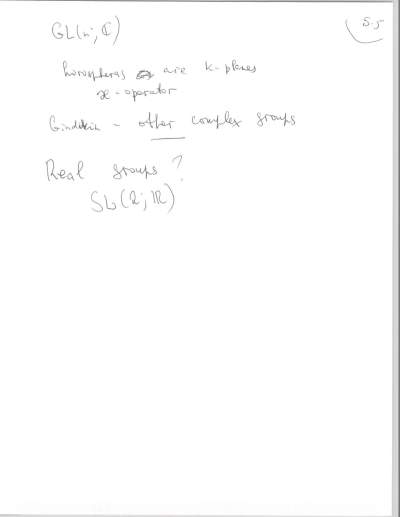 S.5
GL(n; ℂ)
horospheras are k-planes
ϰ-operator
Gindikin - other complex groups
Real groups?
SL(2; ℝ)